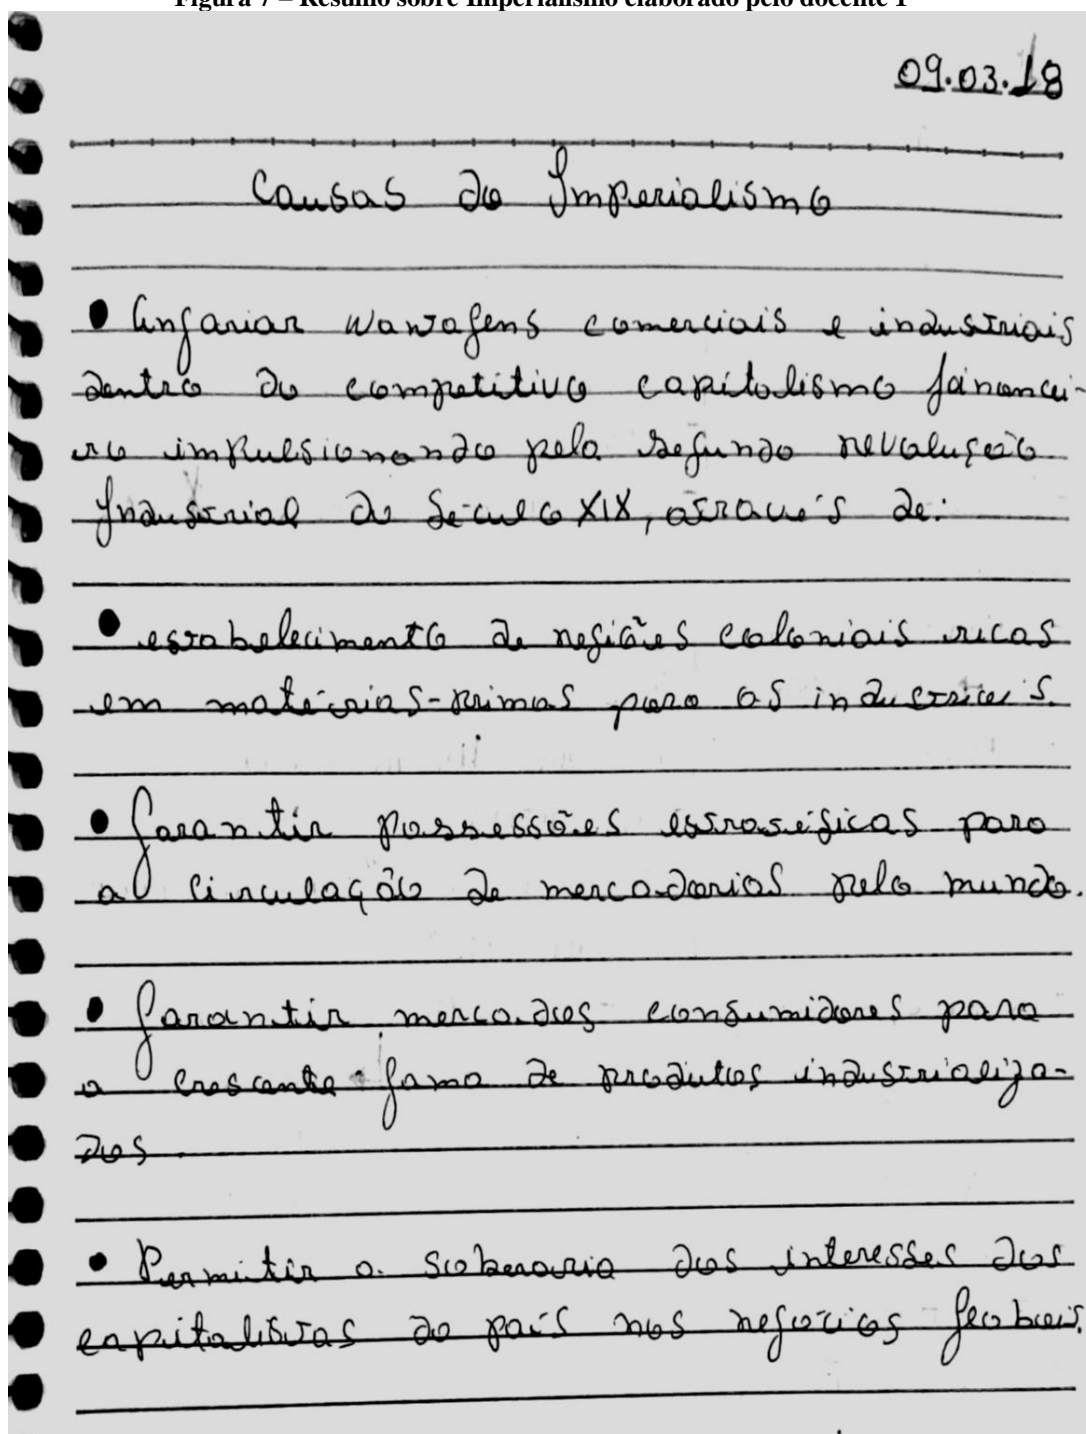 Figura 7 – Resumo sobre Imperialismo elaborado pelo docente 1
09.03.18
Causas do Imperialismo
• Angariar vantagens comerciais e industriais
dentro do competitivo capitalismo financei-
ro impulsionando pela segunda revolução
Industrial do Século XIX, através de:
• estabelecimento de regiões coloniais ricas
em matérias-primas para as industriais.
• Garantir possessões estratégicas para
a circulação de mercadorias pelo mundo.
• Garantir mercados consumidores para
a crescente gama de produtos industrializa-
dos.
• Permitir a soberania dos interesses dos
capitalistas do país nos negócios globais.